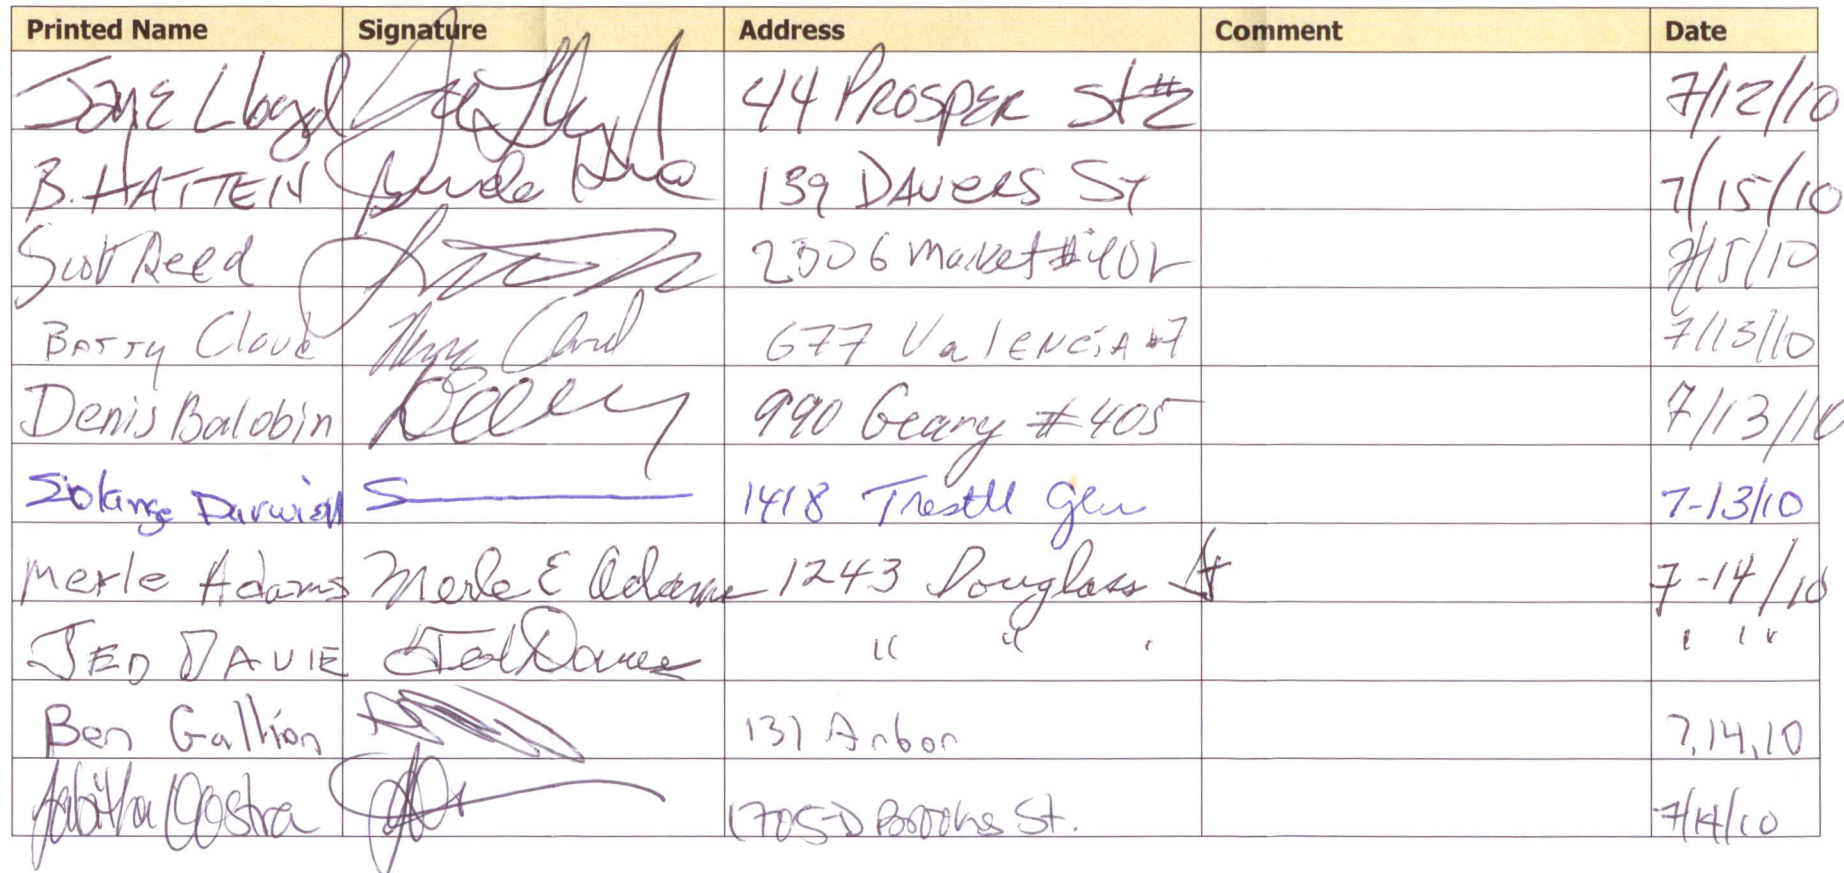 Printed Name Signature Address Comment Date
Jane Lloyd 44 PROSPER St #2 7/12/10
B. HATTEN 139 DAVERS ST 7/15/10
Scott Reed 2306 Market #402 7/15/10
Barry Cloud 677 Valencia #7 7/13/10
Denis Balobin 990 Geary #405 7/13/10
Solange Darwish S 1418 Trestle Glen 7-13/10
Merle Adams Merle E Adams 1243 Douglass St 7-14/10
JED DAVIE Jed Davie " " ' ' " 
Ben Gallion 131 Arbor 7,14,10
Tabitha Oostra 1705-D Brooks St. 7/14/10